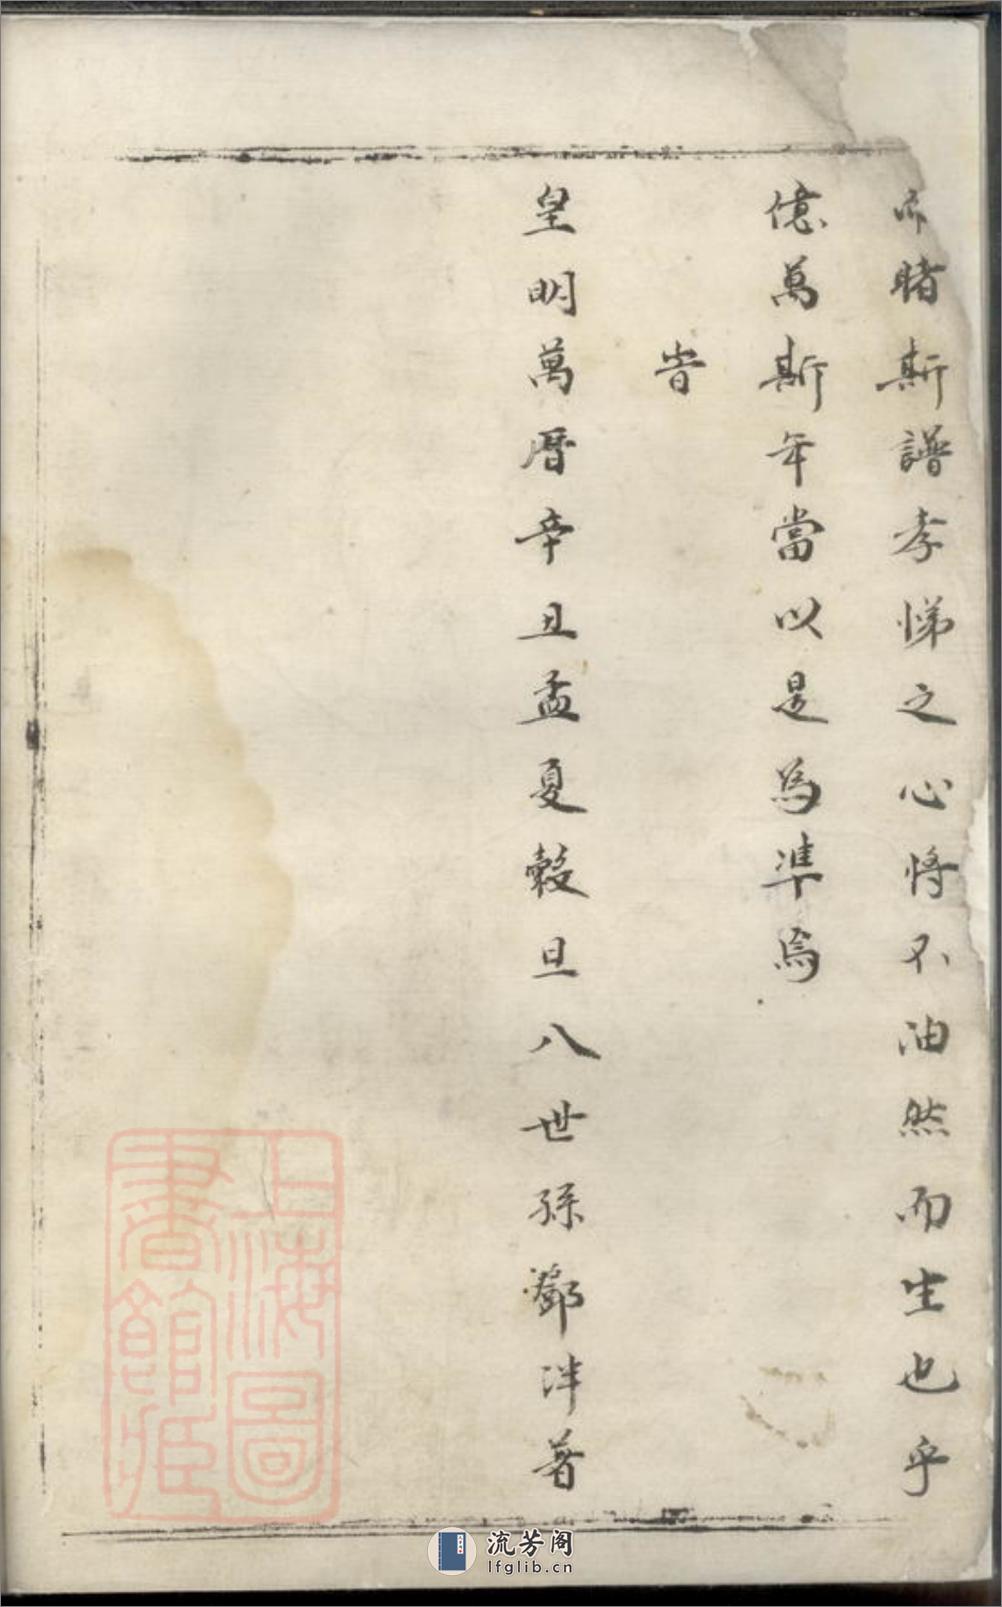 睹斯譜孝悌之心将不油然而生也乎
億萬斯年當以是為準焉
旹
皇明萬曆辛丑孟夏穀旦八世孫鄧泮著
上海圖
書館藏
流芳阁
lfglib.cn